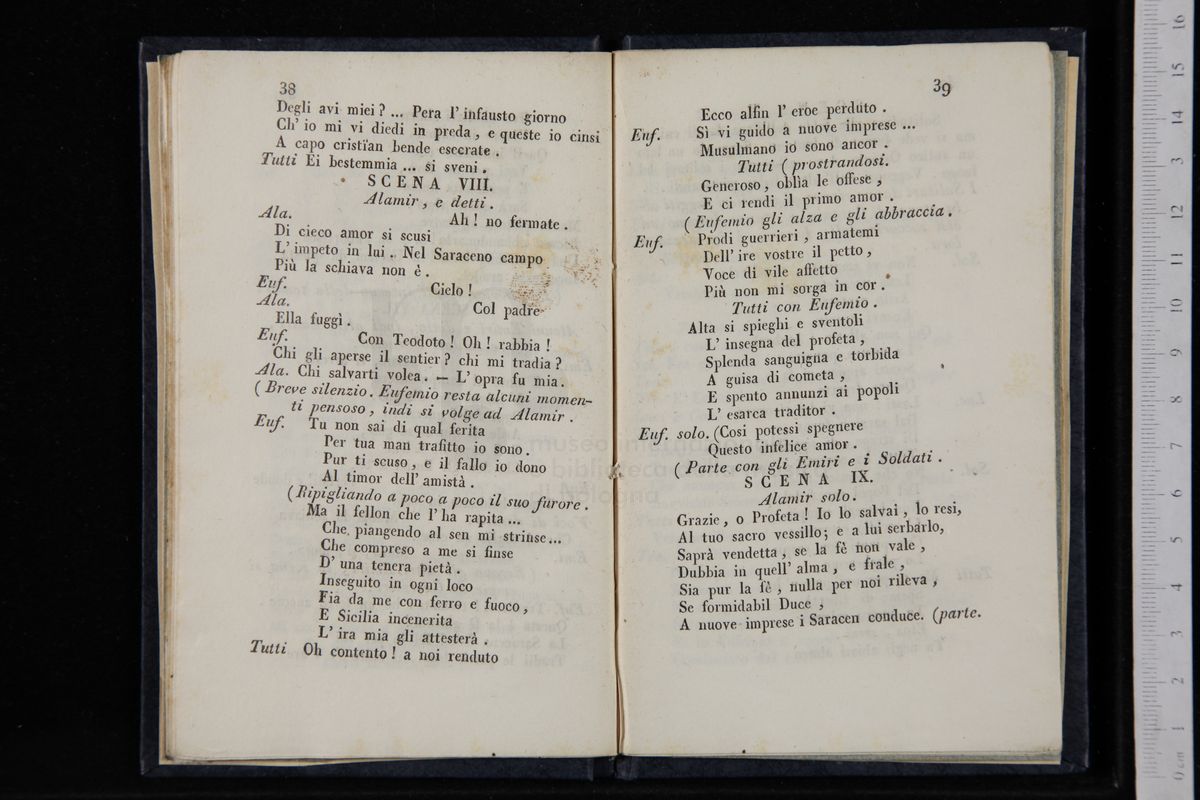 38
Degli avi miei ? ... Pera l' infausto giorno
Ch' io mi vi diedi in preda , e queste io cinsi
A capo cristian bende esecrate .
Tutti Ei bestemmia ... si sveni .
SCENA VIII.
Alamir , e detti .
Ala. Ah ! no fermate .
Di cieco amor si scusi
L' impeto in lui . Nel Saraceno campo
Più la schiava non è .
Euf. Cielo !
Ala. Col padre
Ella fuggì .
Euf. Con Teodoto ! Oh ! rabbia !
Chi gli aperse il sentier ? chi mi tradia ?
Ala. Chi salvarti volea . — L' opra fu mia .
( Breve silenzio . Eufemio resta alcuni momen-
ti pensoso , indi si volge ad Alamir .
Euf. Tu non sai di qual ferita
Per tua man trafitto io sono .
Pur ti scuso , e il fallo io dono
Al timor dell' amistà .
( Ripigliando a poco a poco il suo furore .
Ma il fellon che l' ha rapita ...
Che piangendo al sen mi strinse ...
Che compreso a me si finse
D' una tenera pietà .
Inseguito in ogni loco
Fia da me con ferro e fuoco ,
E Sicilia incenerita
L' ira mia gli attesterà .
Tutti Oh contento ! a noi renduto
39
Ecco alfin l' eroe perduto .
Euf. Sì vi guido a nuove imprese ...
Musulmano io sono ancor .
Tutti ( prostrandosi.
Generoso , oblìa le offese ,
E ci rendi il primo amor .
( Eufemio gli alza e gli abbraccia .
Euf. Prodi guerrieri , armatemi
Dell' ire vostre il petto ,
Voce di vile affetto
Più non mi sorga in cor .
Tutti con Eufemio .
Alta si spieghi e sventoli
L' insegna del profeta ,
Splenda sanguigna e torbida
A guisa di cometa ,
E spento annunzi ai popoli
L' esarca traditor .
Euf. solo. (Così potessi spegnere
Questo infelice amor .
( Parte con gli Emiri e i Soldati .
SCENA IX.
Alamir solo .
Grazie , o Profeta ! Io lo salvai , lo resi,
Al tuo sacro vessillo ; e a lui serbarlo,
Saprà vendetta , se la fè non vale ,
Dubbia in quell' alma , e frale ,
Sia pur la fè , nulla per noi rileva ,
Se formidabil Duce ,
A nuove imprese i Saracen conduce. (parte.